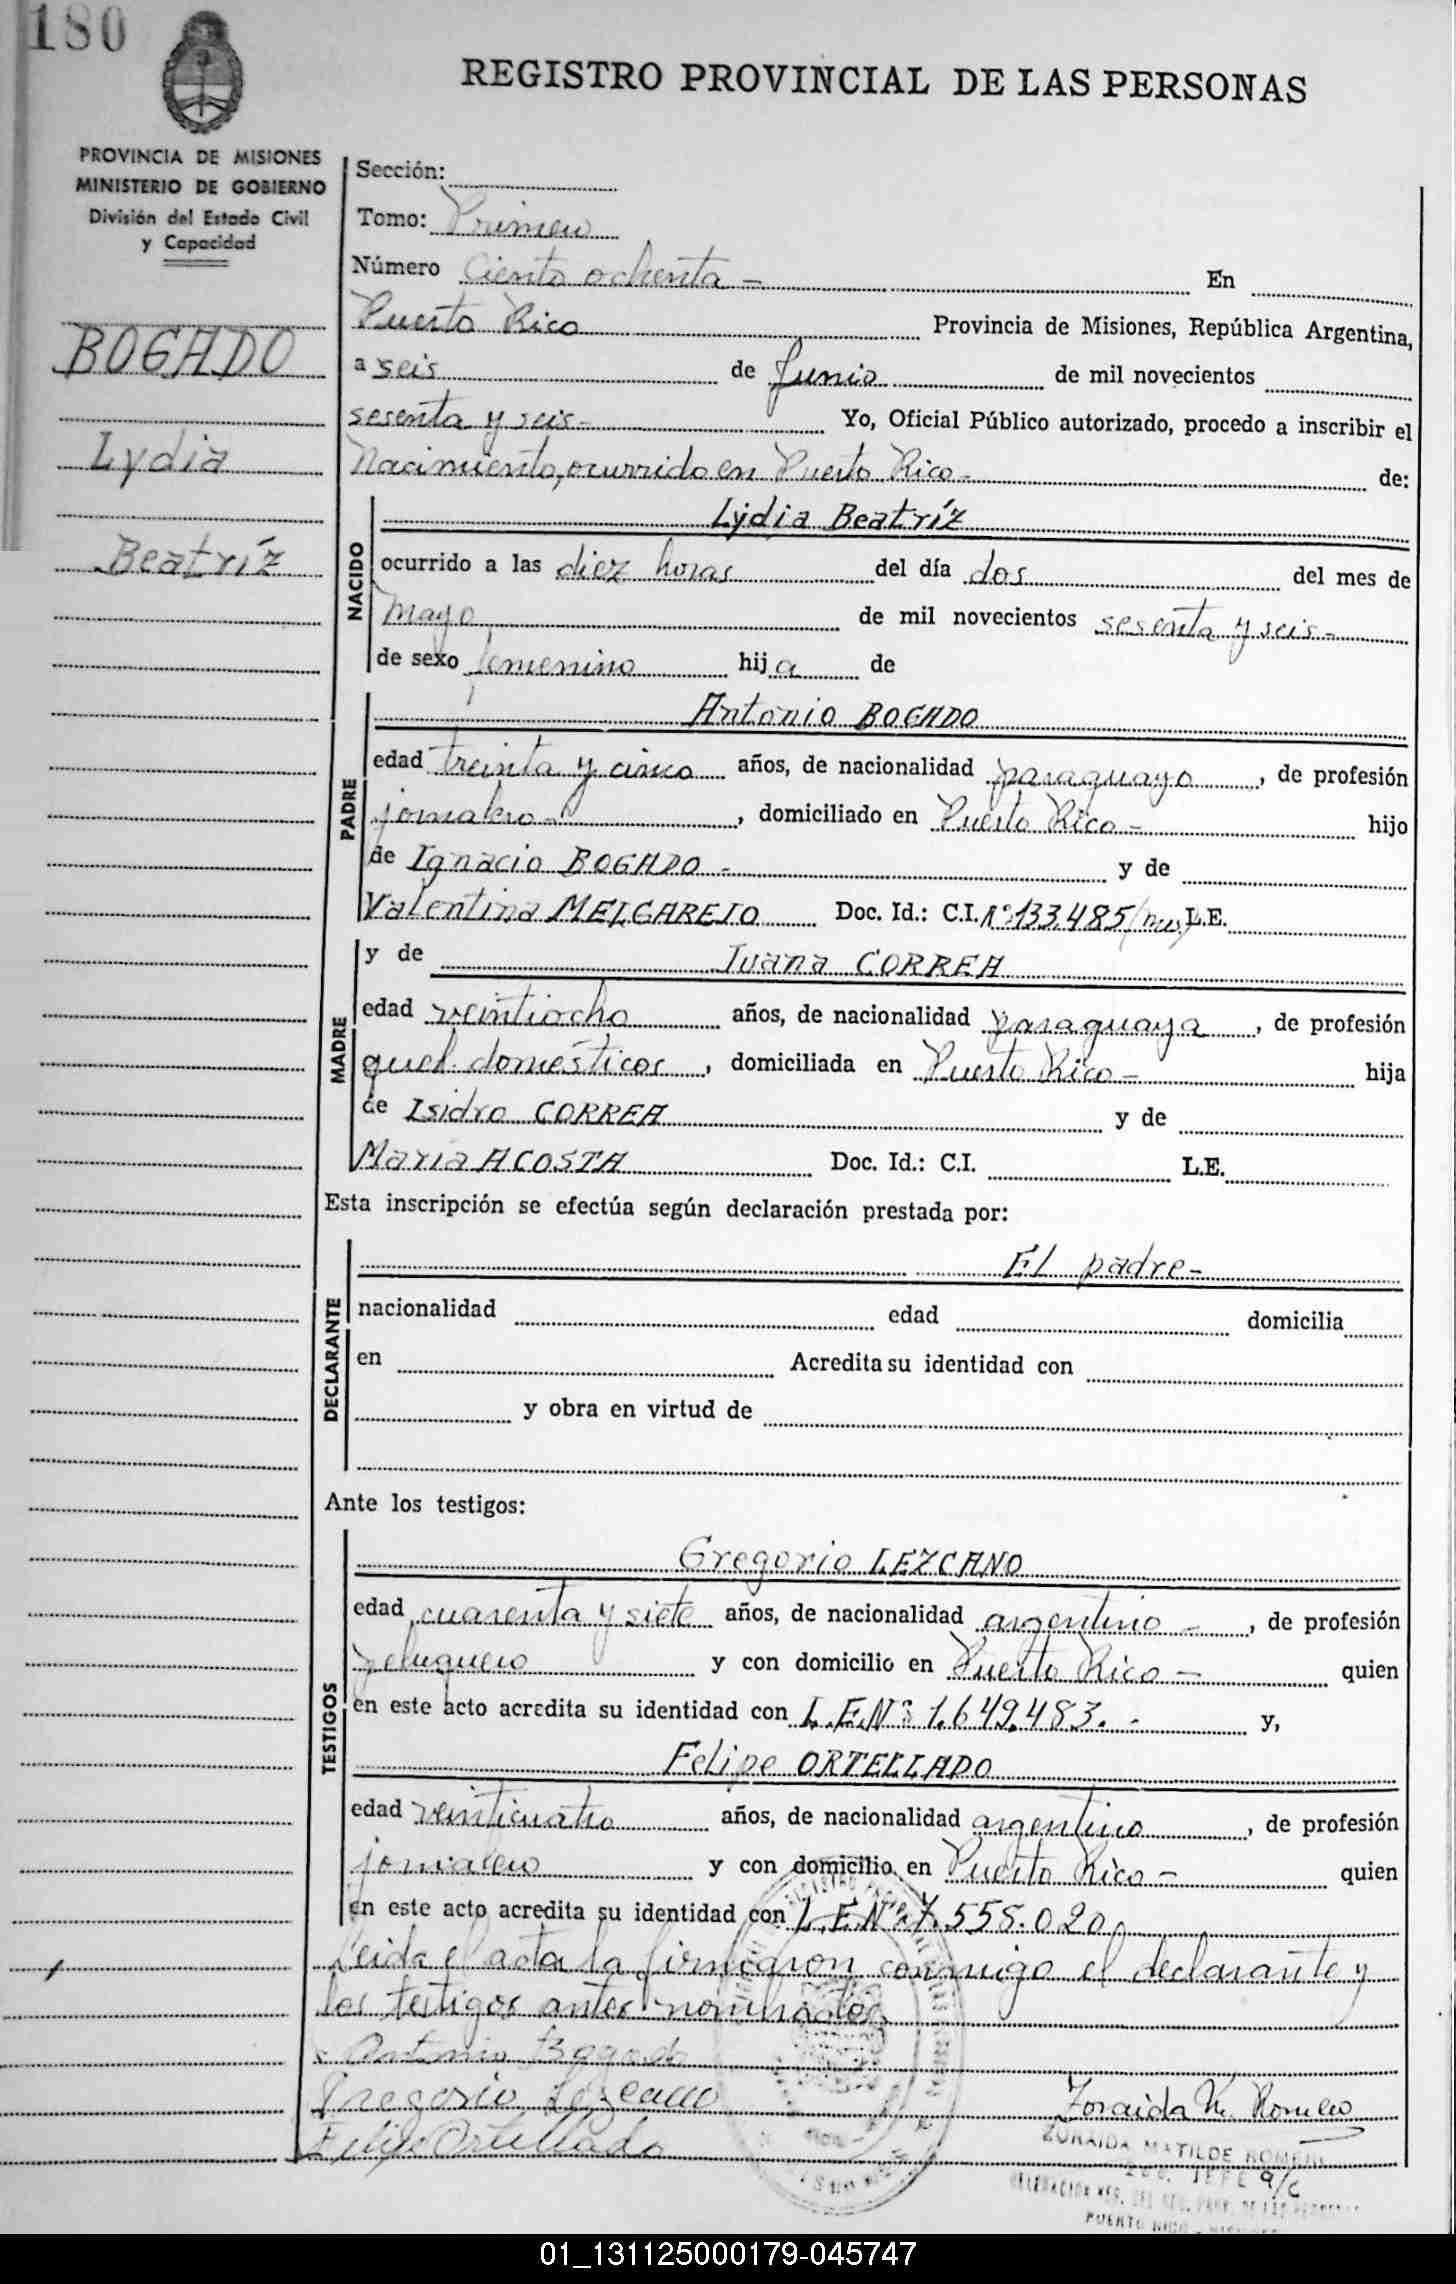 180
REGISTRO PROVINCIAL DE LAS PERSONAS
PROVINCIA DE MISIONES
MINISTERIO DE GOBIERNO
División del Estado Civil
y Capacidad
BOGADO
Lydia
Beatríz
Sección:
Tomo: Primero
Número Ciento ochenta - En
Puerto Rico Provincia de Misiones, República Argentina,
a seis de Junio de mil novecientos
sesenta y seis- Yo, Oficial Público autorizado, procedo a inscribir el
Nacimiento, ocurrido en Puerto Rico- de:
NACIDO
Lydia Beatríz
ocurrido a las diez horas del día dos del mes de
Mayo de mil novecientos sesenta y seis-
de sexo femenino hija de
PADRE
Antonio BOGADO
edad treinta y cinco años, de nacionalidad paraguayo, de profesión
jornalero-, domiciliado en Puerto Rico- hijo
de Ignacio BOGADO - y de
Valentina MELGAREJO Doc. Id.: C.I. Nº 133.485 (mis) L.E.
MADRE
y de Juana CORREA
edad veintiocho años, de nacionalidad paraguaya, de profesión
queh. domésticos, domiciliada en Puerto Rico- hija
de Isidro CORREA y de
María ACOSTA Doc. Id.: C.I. L.E.
Esta inscripción se efectúa según declaración prestada por:
DECLARANTE
El padre-
nacionalidad edad domicilia
en Acredita su identidad con
y obra en virtud de
Ante los testigos:
TESTIGOS
Gregorio LEZCANO
edad cuarenta y siete años, de nacionalidad argentino -, de profesión
peluquero y con domicilio en Puerto Rico- quien
en este acto acredita su identidad con L.E.Nº 1.649.483.- y,
Felipe ORTELLADO
edad veinticuatro años, de nacionalidad argentino, de profesión
jornalero y con domicilio en Puerto Rico- quien
en este acto acredita su identidad con L.E.Nº 7.558.020
Leída el acta la firmaron conmigo el declarante y
los testigos antes nombrados
Antonio Bogado
Gregorio Lezcano
Zoraida M. Romero
Felipe Ortellado
ZORAIDA MATILDE ROMERO
JEFE a/c
PUERTO RICO - MISIONES
01_131125000179-045747